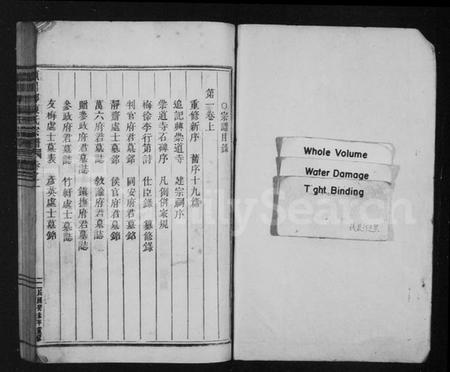 ○宗譜目錄
第一卷上
重修新序 舊序十九條
追記興崇道寺 建宗祠序
崇道寺石碑序 凡例併家規
梅徐李行第詩 仕臣錄 纂修錄
判官府君墓銘 國安府君墓銘
靜齋處士墓銘 侯官府君墓銘
萬六府君墓誌 敎諭府君墓誌
贈參政府君墓誌 鎮撫府君墓誌
參政府君墓誌 竹軒處士墓誌
友梅處士墓表 彥英處士墓銘
Whole Volume
Water Damage
Tight Binding